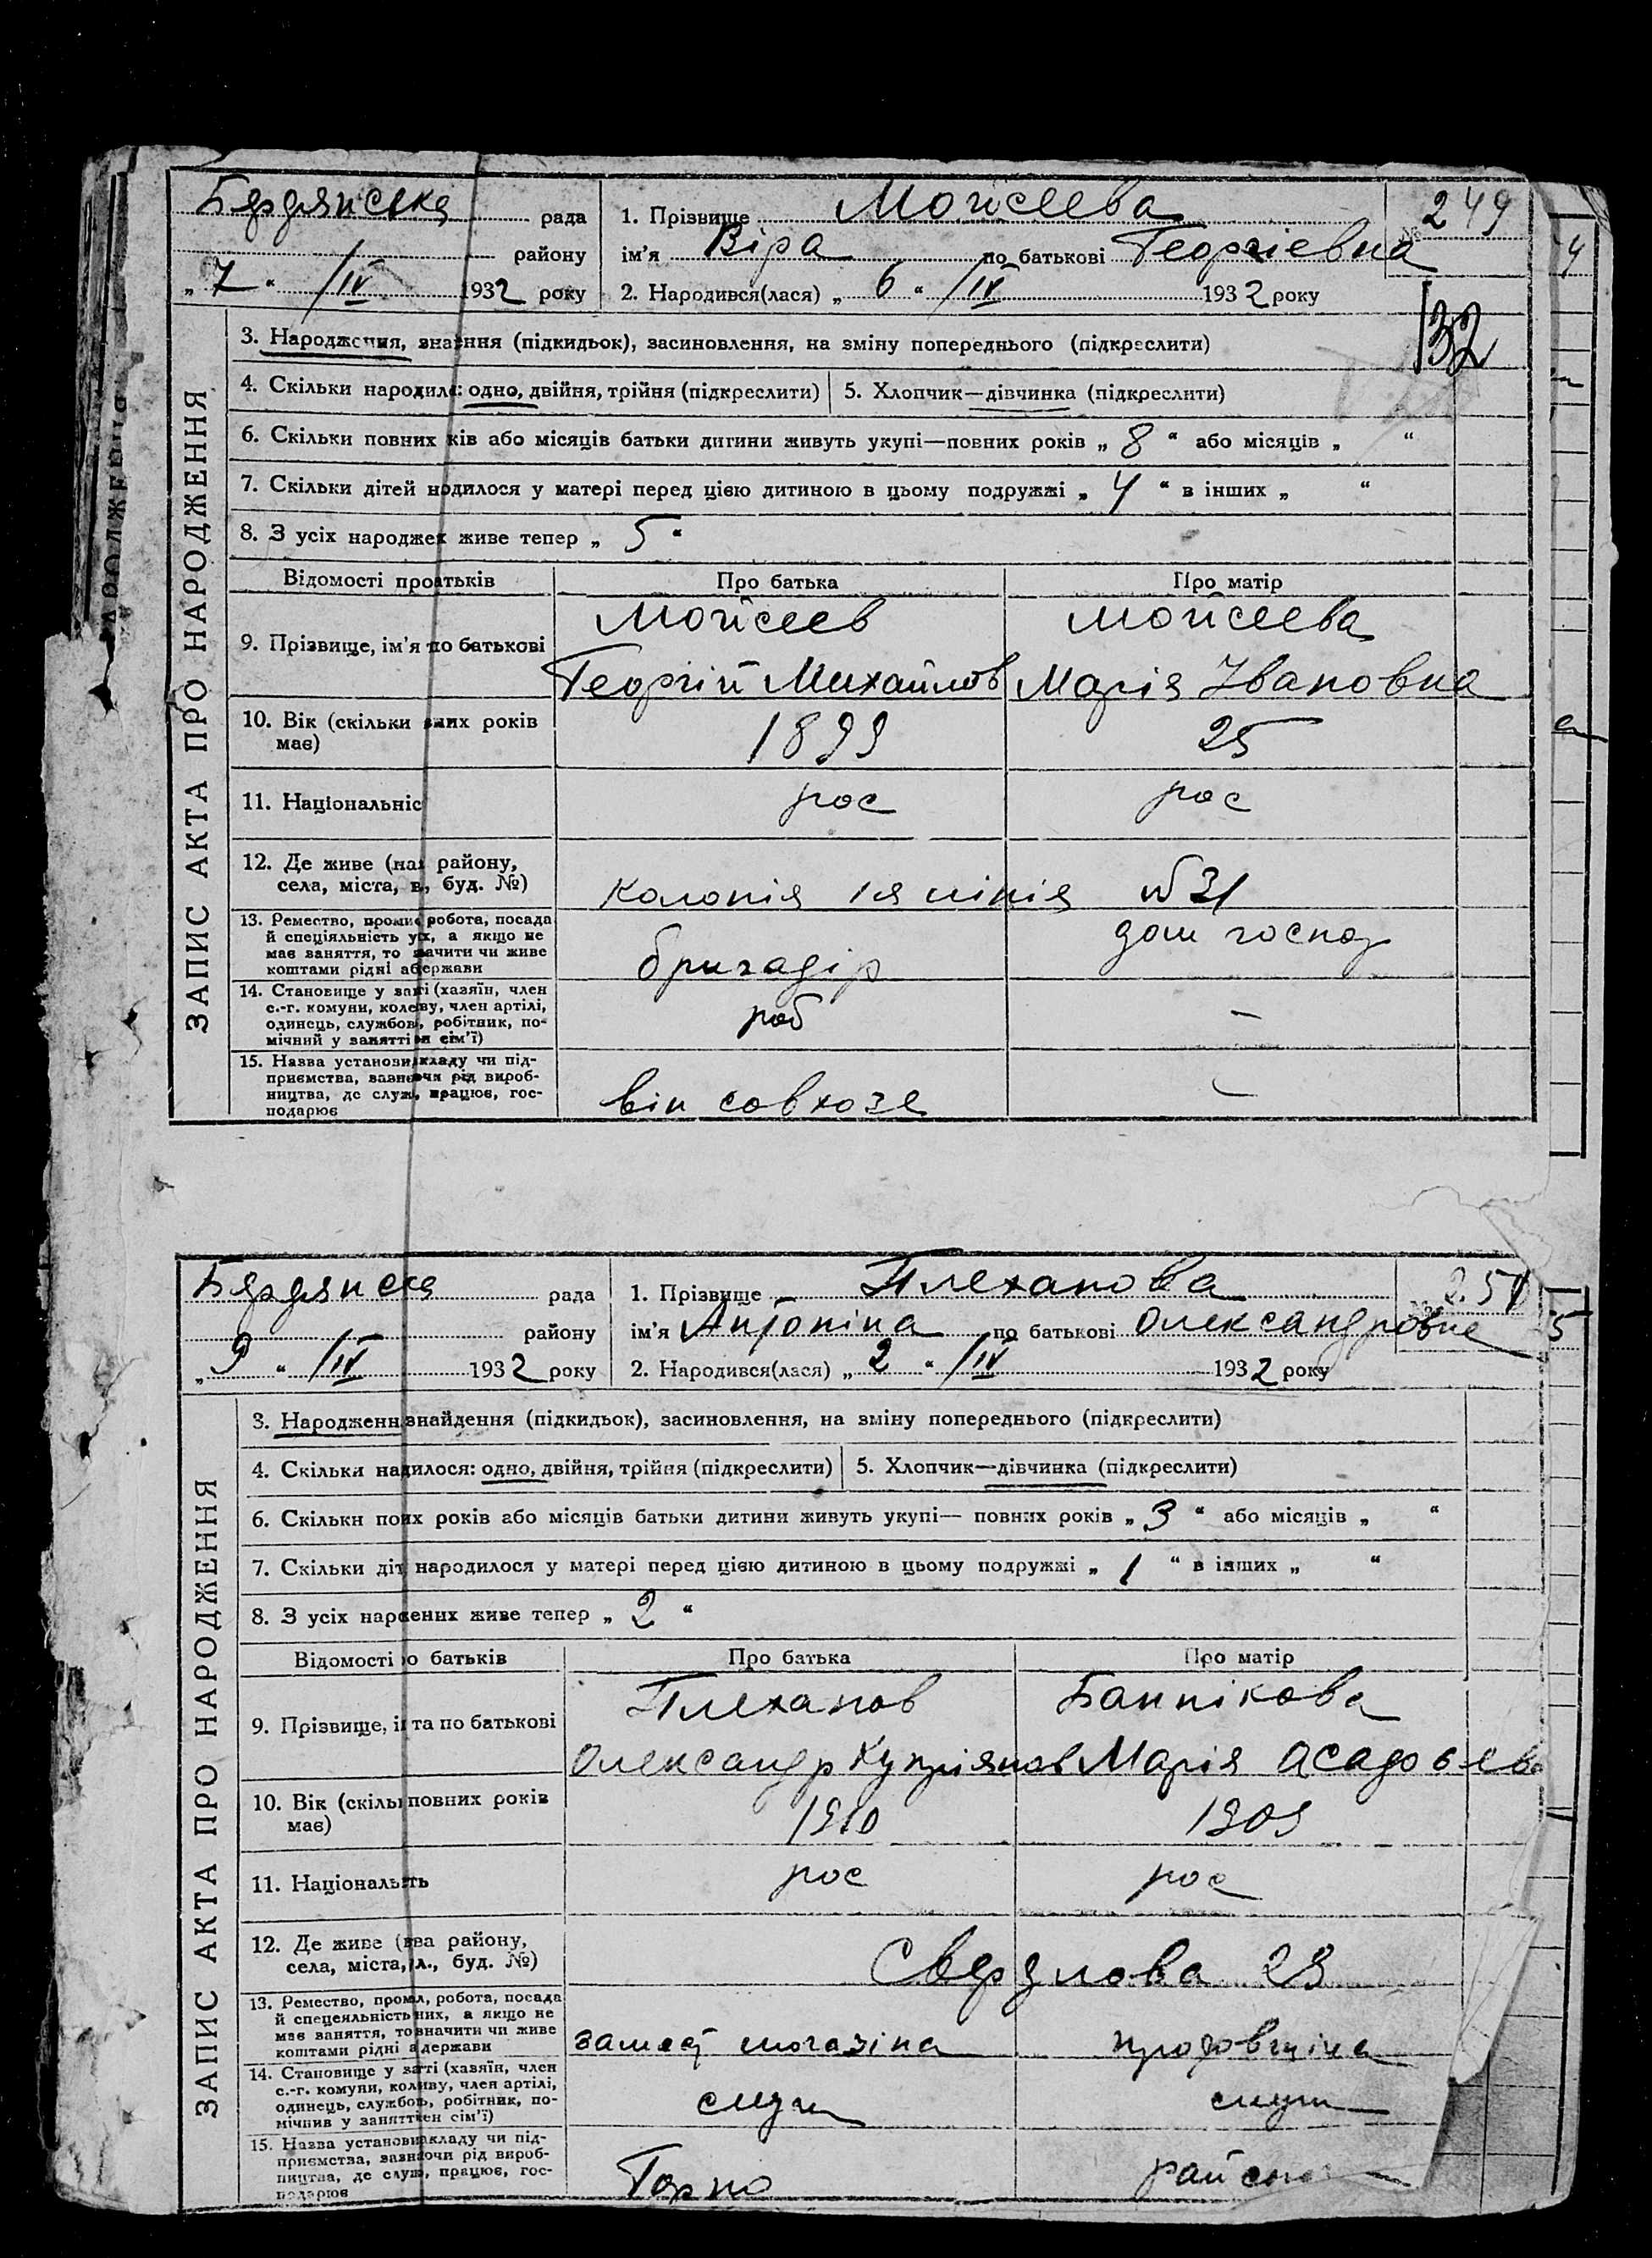 ЗАПИС АКТА ПРО НАРОДЖЕННЯ
Бердянська рада
району
„ 7 “ /IV 1932 року
1. Прізвище Мойсеева
ім'я Віра по батькові Георгіевна
2. Народився(лася) „ 6 “ /IV 1932 року
№ 249
132
3. Народження, зна ння (підкидьок), засиновлення, на зміну попереднього (підкреслити)
4. Скільки народил : одно, двійня, трійня (підкреслити) 5. Хлопчик—дівчинка (підкреслити)
6. Скільки повних ків або місяців батьки дитини живуть укупі—повних років „ 8 “ або місяців „ “
7. Скільки дітей н одилося у матері перед цією дитиною в цьому подружжі „ 4 “ в інших „ “
8. З усіх народже х живе тепер „ 5 “
Відомості про атьків Про батька Про матір
9. Прізвище, ім'я по батькові
Мойсеев Мойсеева
Георгій Михайлов Марія Івановна
10. Вік (скільки них років має) 1899 25
11. Національніс рос рос
12. Де живе (на району,
села, міста, в , буд. №) Колонія 1я лінія №31
13. Ремество, проми робота, посада
й спеціяльність у х, а якщо не
має заняття, то ачити чи живе
коштами рідні а держави
бригадір дом господ
14. Становище у за ті (хазяїн, член
с.-г. комуни, кол ву, член артілі,
одинець, службов , робітник, по-
мічний у занятті н сім'ї)
роб —
15. Назва установи кладу чи під-
приємства, зазн чи рід вироб-
ництва, де служ , працює, гос-
подарює
він совхозе —
ЗАПИС АКТА ПРО НАРОДЖЕННЯ
Бердянска рада
району
„ 9 “ /IV 1932 року
1. Прізвище Плеханова
ім'я Антоніна по батькові Олександровне
2. Народився(лася) „ 2 “ /IV 1932 року
№ 250
3. Народженн знайдення (підкидьок), засиновлення, на зміну попереднього (підкреслити)
4. Скільки на дилося: одно, двійня, трійня (підкреслити) 5. Хлопчик—дівчинка (підкреслити)
6. Скільки по их років або місяців батьки дитини живуть укупі— повних років „ 3 “ або місяців „ “
7. Скільки діт народилося у матері перед цією дитиною в цьому подружжі „ 1 “ в інших „ “
8. З усіх нар ених живе тепер „ 2 “
Відомості о батьків Про батька Про матір
9. Прізвище, і та по батькові
Плеханов Баннікова
Олександр Купріянов Марія
10. Вік (скіль повних років має) 1910 1909
11. Національ ть рос рос
12. Де живе ( ва району,
села, міста, л., буд. №) Свердлова 23
13. Ремество, пром л, робота, посада
й спецеяльність них, а якщо не
має заняття, то значити чи живе
коштами рідні а держави
магазіна продовщіца
14. Становище у за ті (хазяїн, член
с.-г. комуни, кол иву, член артілі,
одинець, службов , робітник, по-
мічнив у занятт ен сім'ї)
служ служ
15. Назва установи кладу чи під-
приємства, зазн очи рід вироб-
ництва, де служ , працює, гос-
подарює